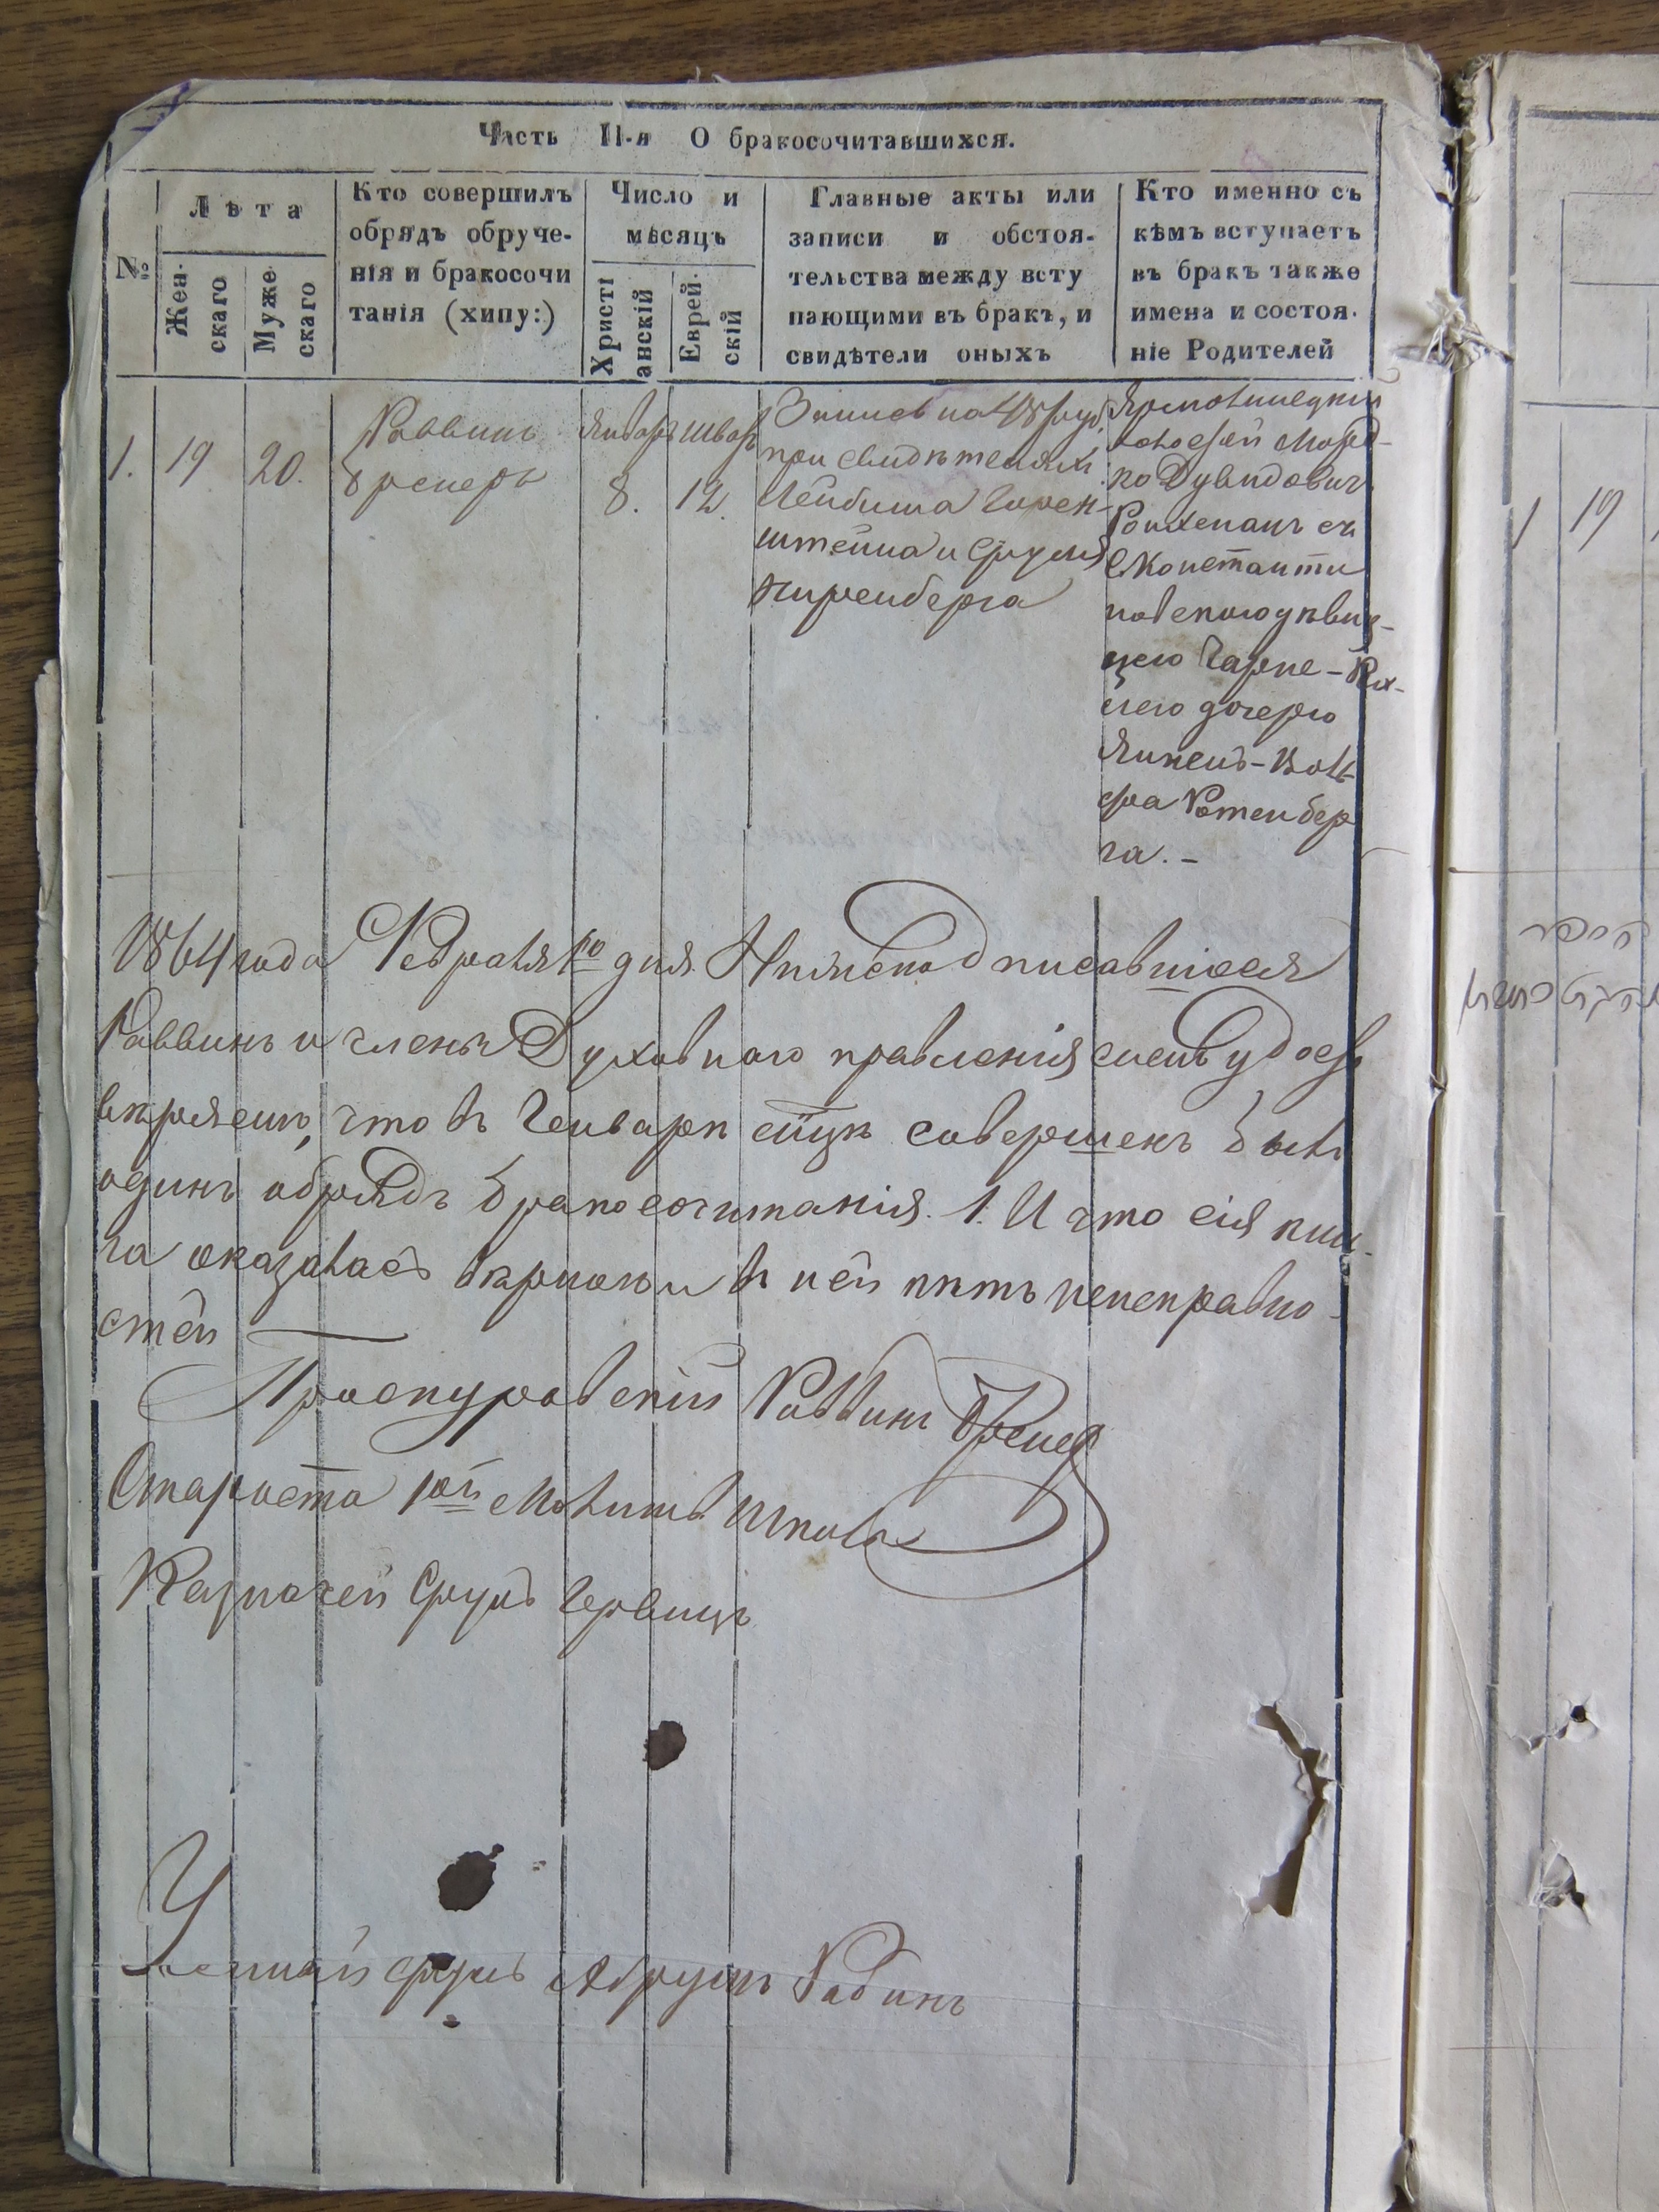 Часть II-я О бракосочитавшихся.
№
Лѣта
Жен-
скаго
Муже
скаго
Кто совершилъ
обрядъ обруче-
нія и бракосочи
танія (хипу:)
Число и
мѣсяцъ
Христі
анскій
Еврей-
скій
Главные акты или
записи и обстоя-
тельства между всту
пающими въ бракъ, и
свидѣтели оныхъ
Кто именно съ
кѣмъ вступаетъ
въ бракъ также
имена и состоя-
ніе Родителей
1.
19
20.
Раввинъ
Январь
8.
Шватъ
12.
Запись на 48 руб.
при свидѣтеляхъ
Лейбиша Горен-
штейна и Сруля
Ниренберга
Ярмолинецкій
холостый Морд-
ко Дувидовичъ
Ройтманъ съ
Сконстанти
новскою дѣвиц-
ею дочерью
Янкель-Воль
фа Ротенбер
га. –
1864 года Февраля 1го дня Нижеподписавшіеся
Раввинъ и члены Духовнаго правленія симъ удосто
вѣряемъ, что въ Генварѣ мцѣ совершенъ былъ
одинъ обрядъ бракосочитанія. 1. И что сія кни-
га оказалась вѣрною и въ ней нѣтъ неисправно-
стей
Проскуровскій Раввинъ
Староста 1ой Молитв Школы
Казначей Сруль
Ученый Сруль Абрумъ Рабинъ
1 19